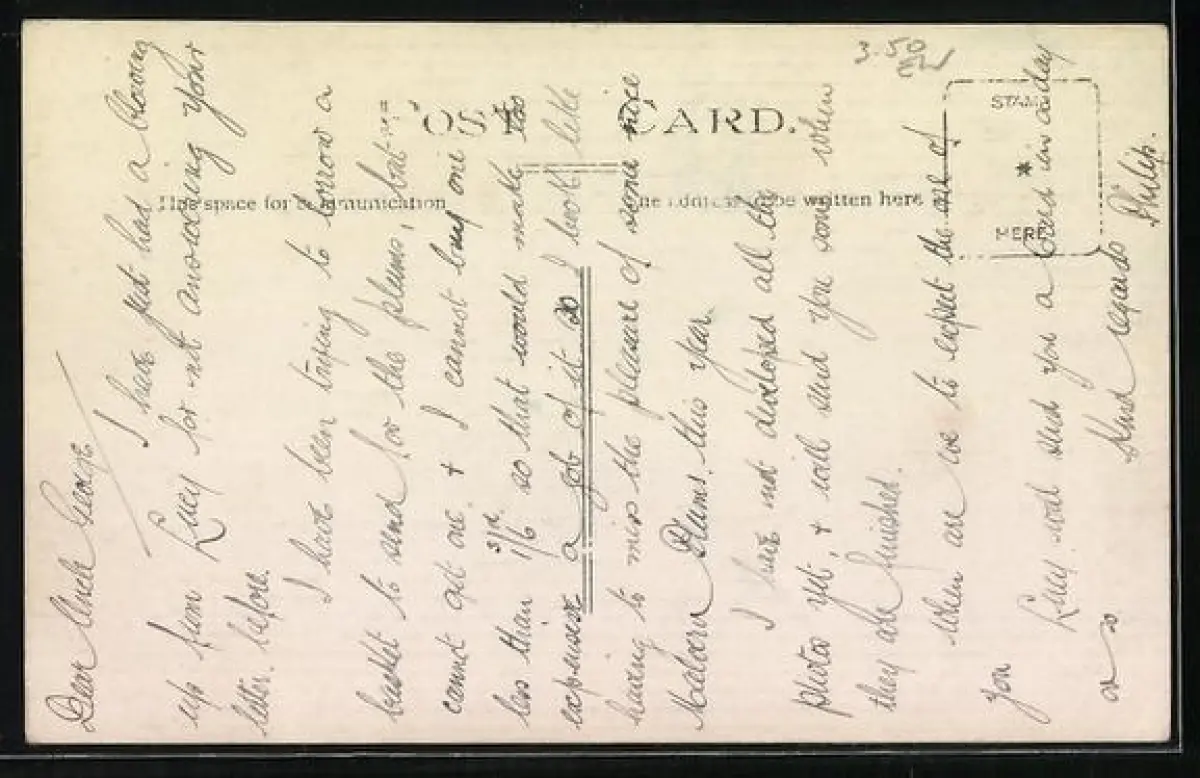 3.50
POST CARD.
This space for communication
The address to be written here
STAMP
HERE
Dear Uncle George
I have just had a blowing
up from Lucy for not answering your
letter before.
I have been trying to borrow a
basket to send for the plums, but
cannot get one & I cannot buy one
less than 1/6 so that would make too
expensive a job of it so I look like
having to miss the pleasure of some nice
Malvern Plums this year.
I have not developed all the
photos yet, & will send you some when
they are finished.
When are we to expect the rest of
you
Lucy will send you a card in a day
or so
Kind regards
Philip.